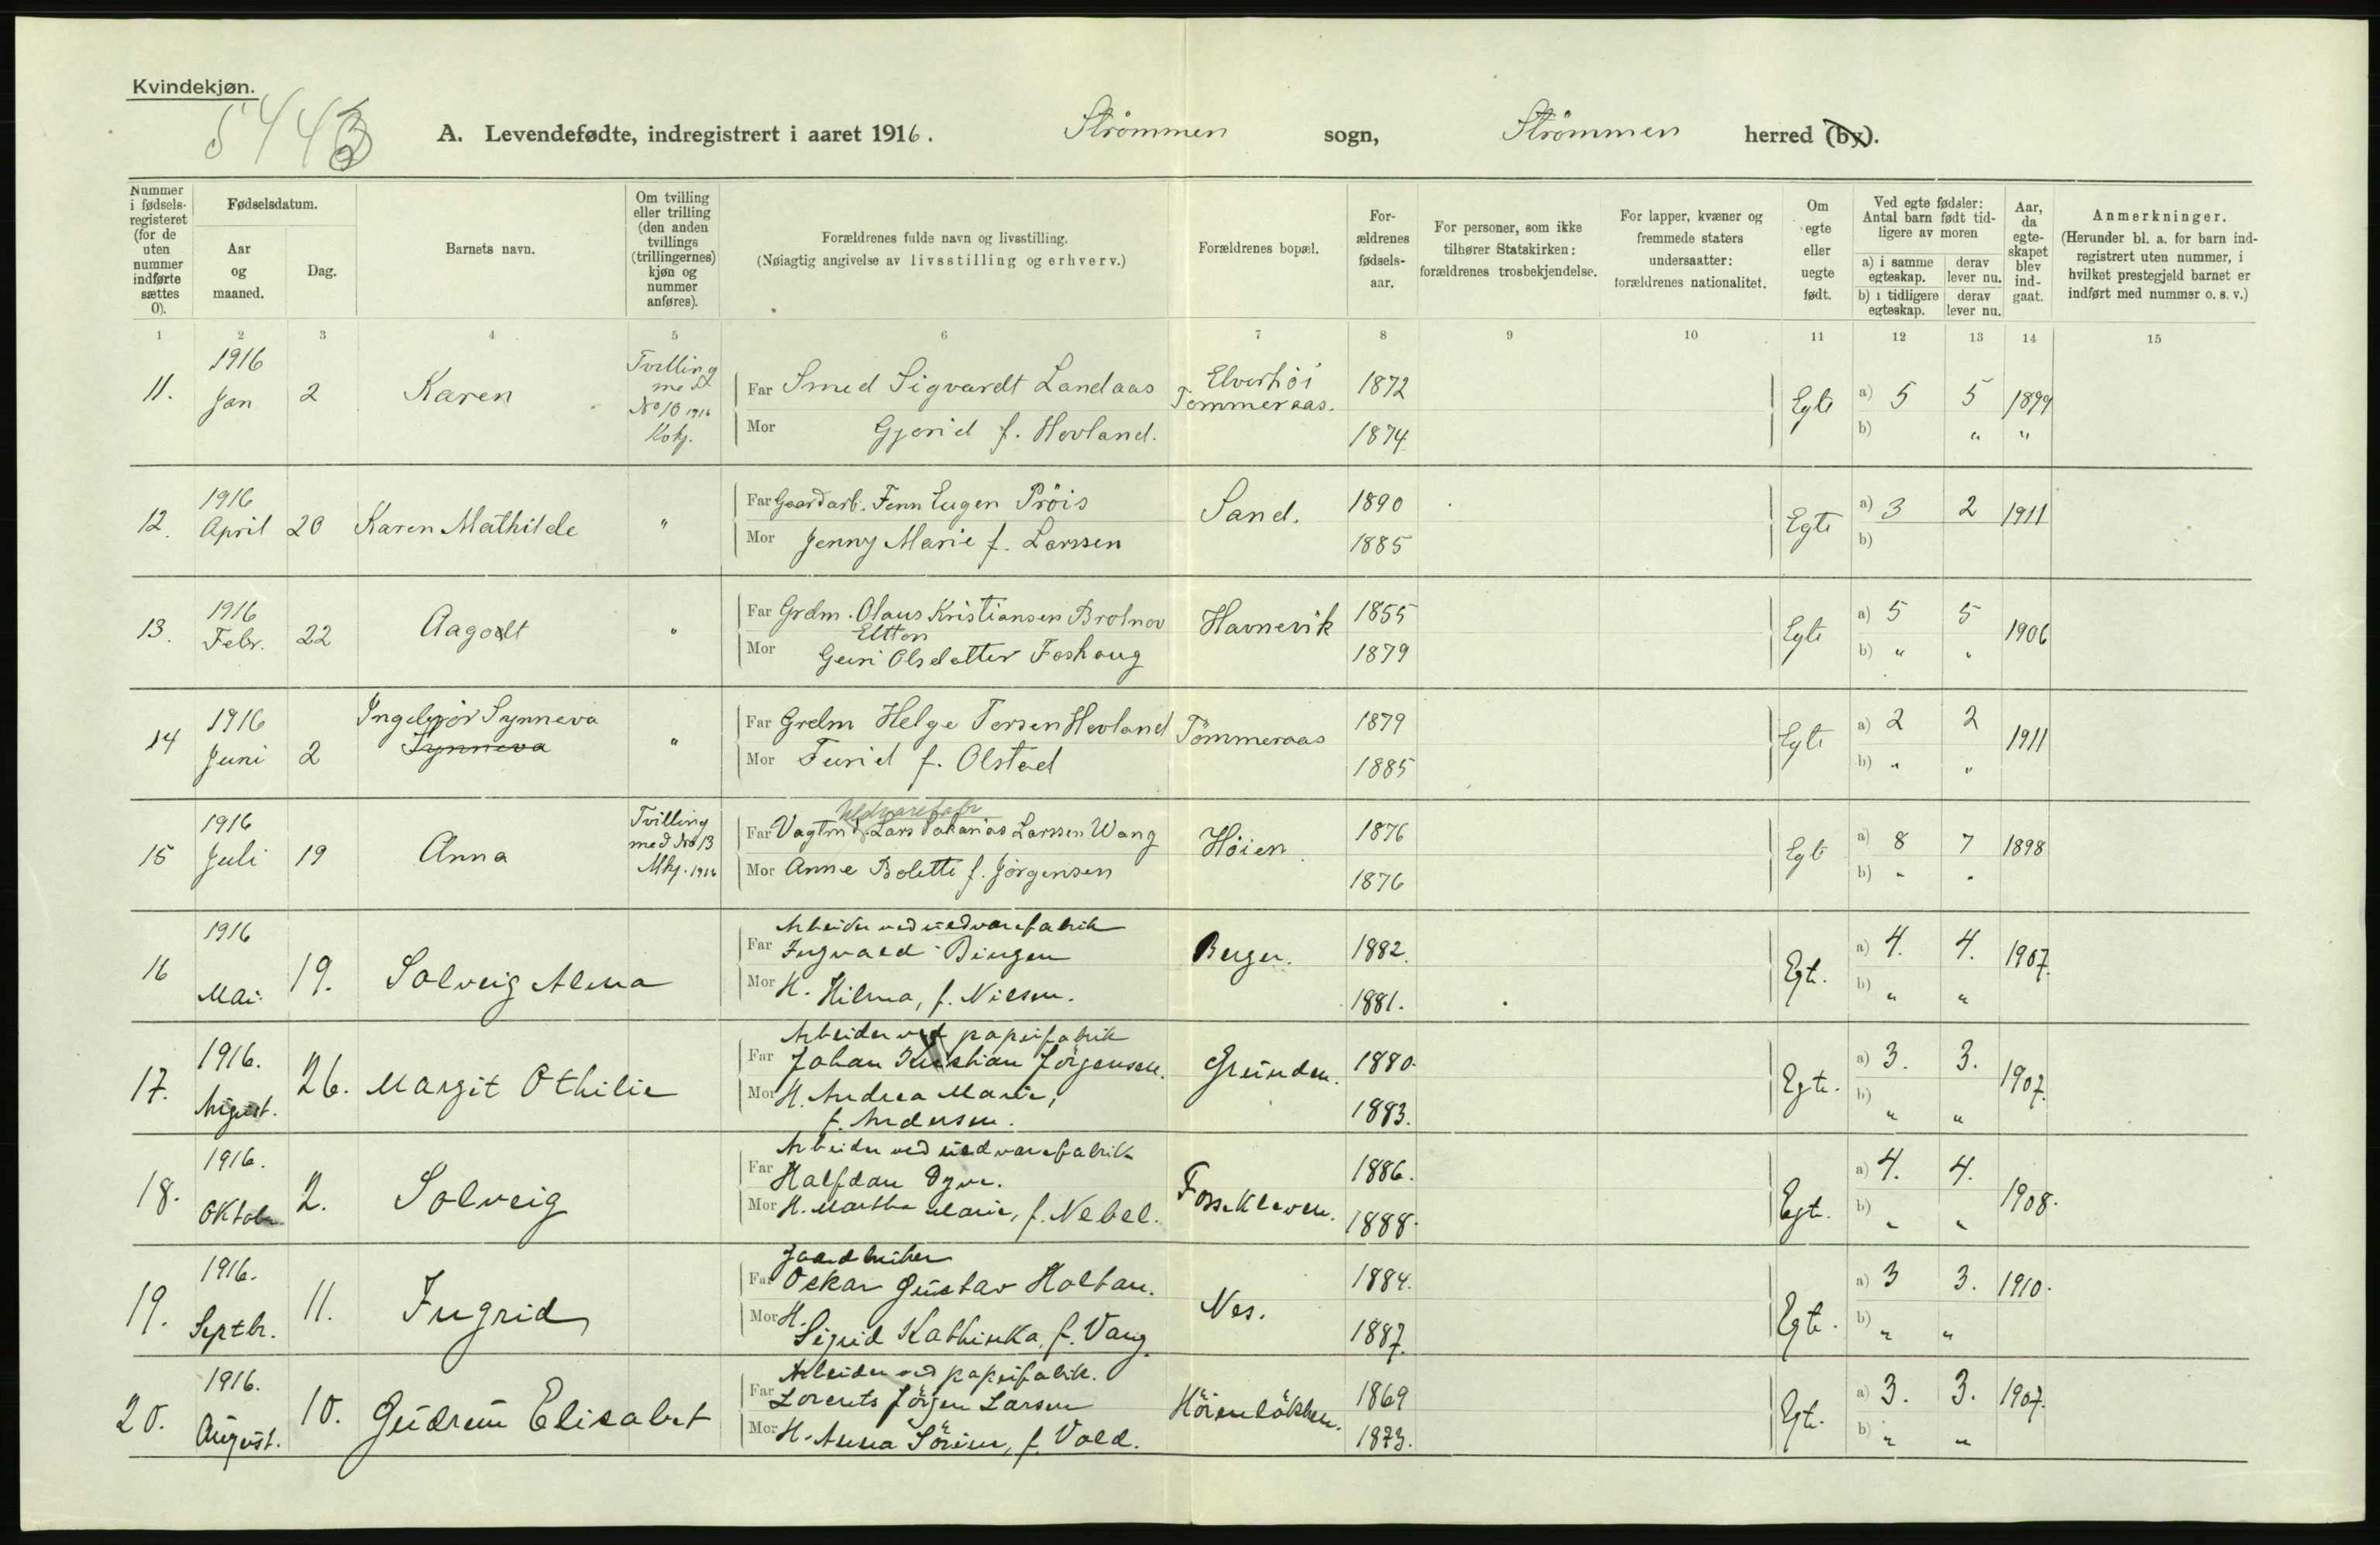 Kvindekjøn.
5443
A. Levendefødte, indregistrert i aaret 1916. Strömmen sogn, Strömmen herred (by).
Nummer i fødselsregisteret (for de uten nummer indførte sættes 0).
Fødselsdatum.
Aar og maaned.
Dag.
Barnets navn.
Om tvilling eller trilling (den anden tvillings (trillingernes) kjøn og nummer anføres).
Forældrenes fulde navn og livsstilling.
(Nøiagtig angivelse av livsstilling og erhverv.)
Forældrenes bopæl.
Forældrenes fødselsaar.
For personer, som ikke tilhører Statskirken: forældrenes trosbekjendelse.
For lapper, kvæner og fremmede staters undersaatter: forældrenes nationalitet.
Om egte eller uegte født.
Ved egte fødsler: Antal barn født tidligere av moren
a) i samme egteskap. derav lever nu.
b) i tidligere egteskap. derav lever nu.
Aar, da egteskapet blev indgaat.
Anmerkninger.
(Herunder bl. a. for barn indregistrert uten nummer, i hvilket prestegjeld barnet er indført med nummer o. s. v.)
1 2 3 4 5 6 7 8 9 10 11 12 13 14 15
11. 1916 Jan 2 Karen Tvilling med No 10 1916 Kvkj.
Far Smed Sigvardt Landaas Elverhöi Tömmeraas. 1872 Egte a) 5 5 1899
Mor Gjörid f. Hovland. 1874 b) " "
12. 1916 April 20 Karen Mathilde "
Far Gaardarb. Fenn Eugen Pröis Sand. 1890 Egte a) 3 2 1911
Mor Jenny Marie f. Larssen 1885 b)
13. 1916 Febr. 22 Aagodt "
Far Grdm. Olaus Kristiansen Havnevik 1855 Egte a) 5 5 1906
Mor Guri Olsdatter Foshaug 1879 b) " "
14 1916 Juni 2 Ingebjör Synneva Synneva "
Far Grdm Helge Torsen Hovland Tömmeraas 1879 Egte a) 2 2 1911
Mor Turid f. Olstad 1885 b) " "
15 1916 Juli 19 Anna Tvilling med No 13 Mkj. 1916
Uldvarefabr
Far Vagtm. Lars Sakarias Larssen Wang Höien. 1876 Egte a) 8 7 1898
Mor Anne Bolette f. Jörgensen 1876 b) " "
16 1916 Mai. 19. Solveig Alma
Arbeider ved uldvarefabrik
Far Ingvald Bingen Berger. 1882. Egte. a) 4. 4. 1907.
Mor H. Hilma, f. Nilsen. 1881. b) " "
17. 1916. August. 26. Margit Othilie
Arbeider ved papirfabrik
Far Johan Kristian Jörgensen. Grunden. 1880. Egte. a) 3. 3. 1907.
Mor H. Andrea Marie, 1883. b) " "
f. Andersen.
18. 1916. Oktober 2. Solveig
Arbeider ved uldvarefabrik
Far Halfdan Dyve. Fossekleven. 1886. Egte. a) 4. 4. 1908.
Mor H. Martha Marie, f. Nebel. 1888. b) " "
19. 1916. Septbr. 11. Ingrid
Gaardbruker
Far Oskar Gustav Holtan. Nes. 1884. Egte. a) 3 3. 1910.
Mor H. Sigrid Kathinka, f. Vang. 1887. b) " "
20. 1916. August. 10. Gudrun Elisabet
Arbeider ved papirfabrik.
Far Lorents Jörgen Larsen Höienlökken. 1869 Egte. a) 3. 3. 1907.
Mor H. Anna Sörine, f. Vold. 1873. b) " "